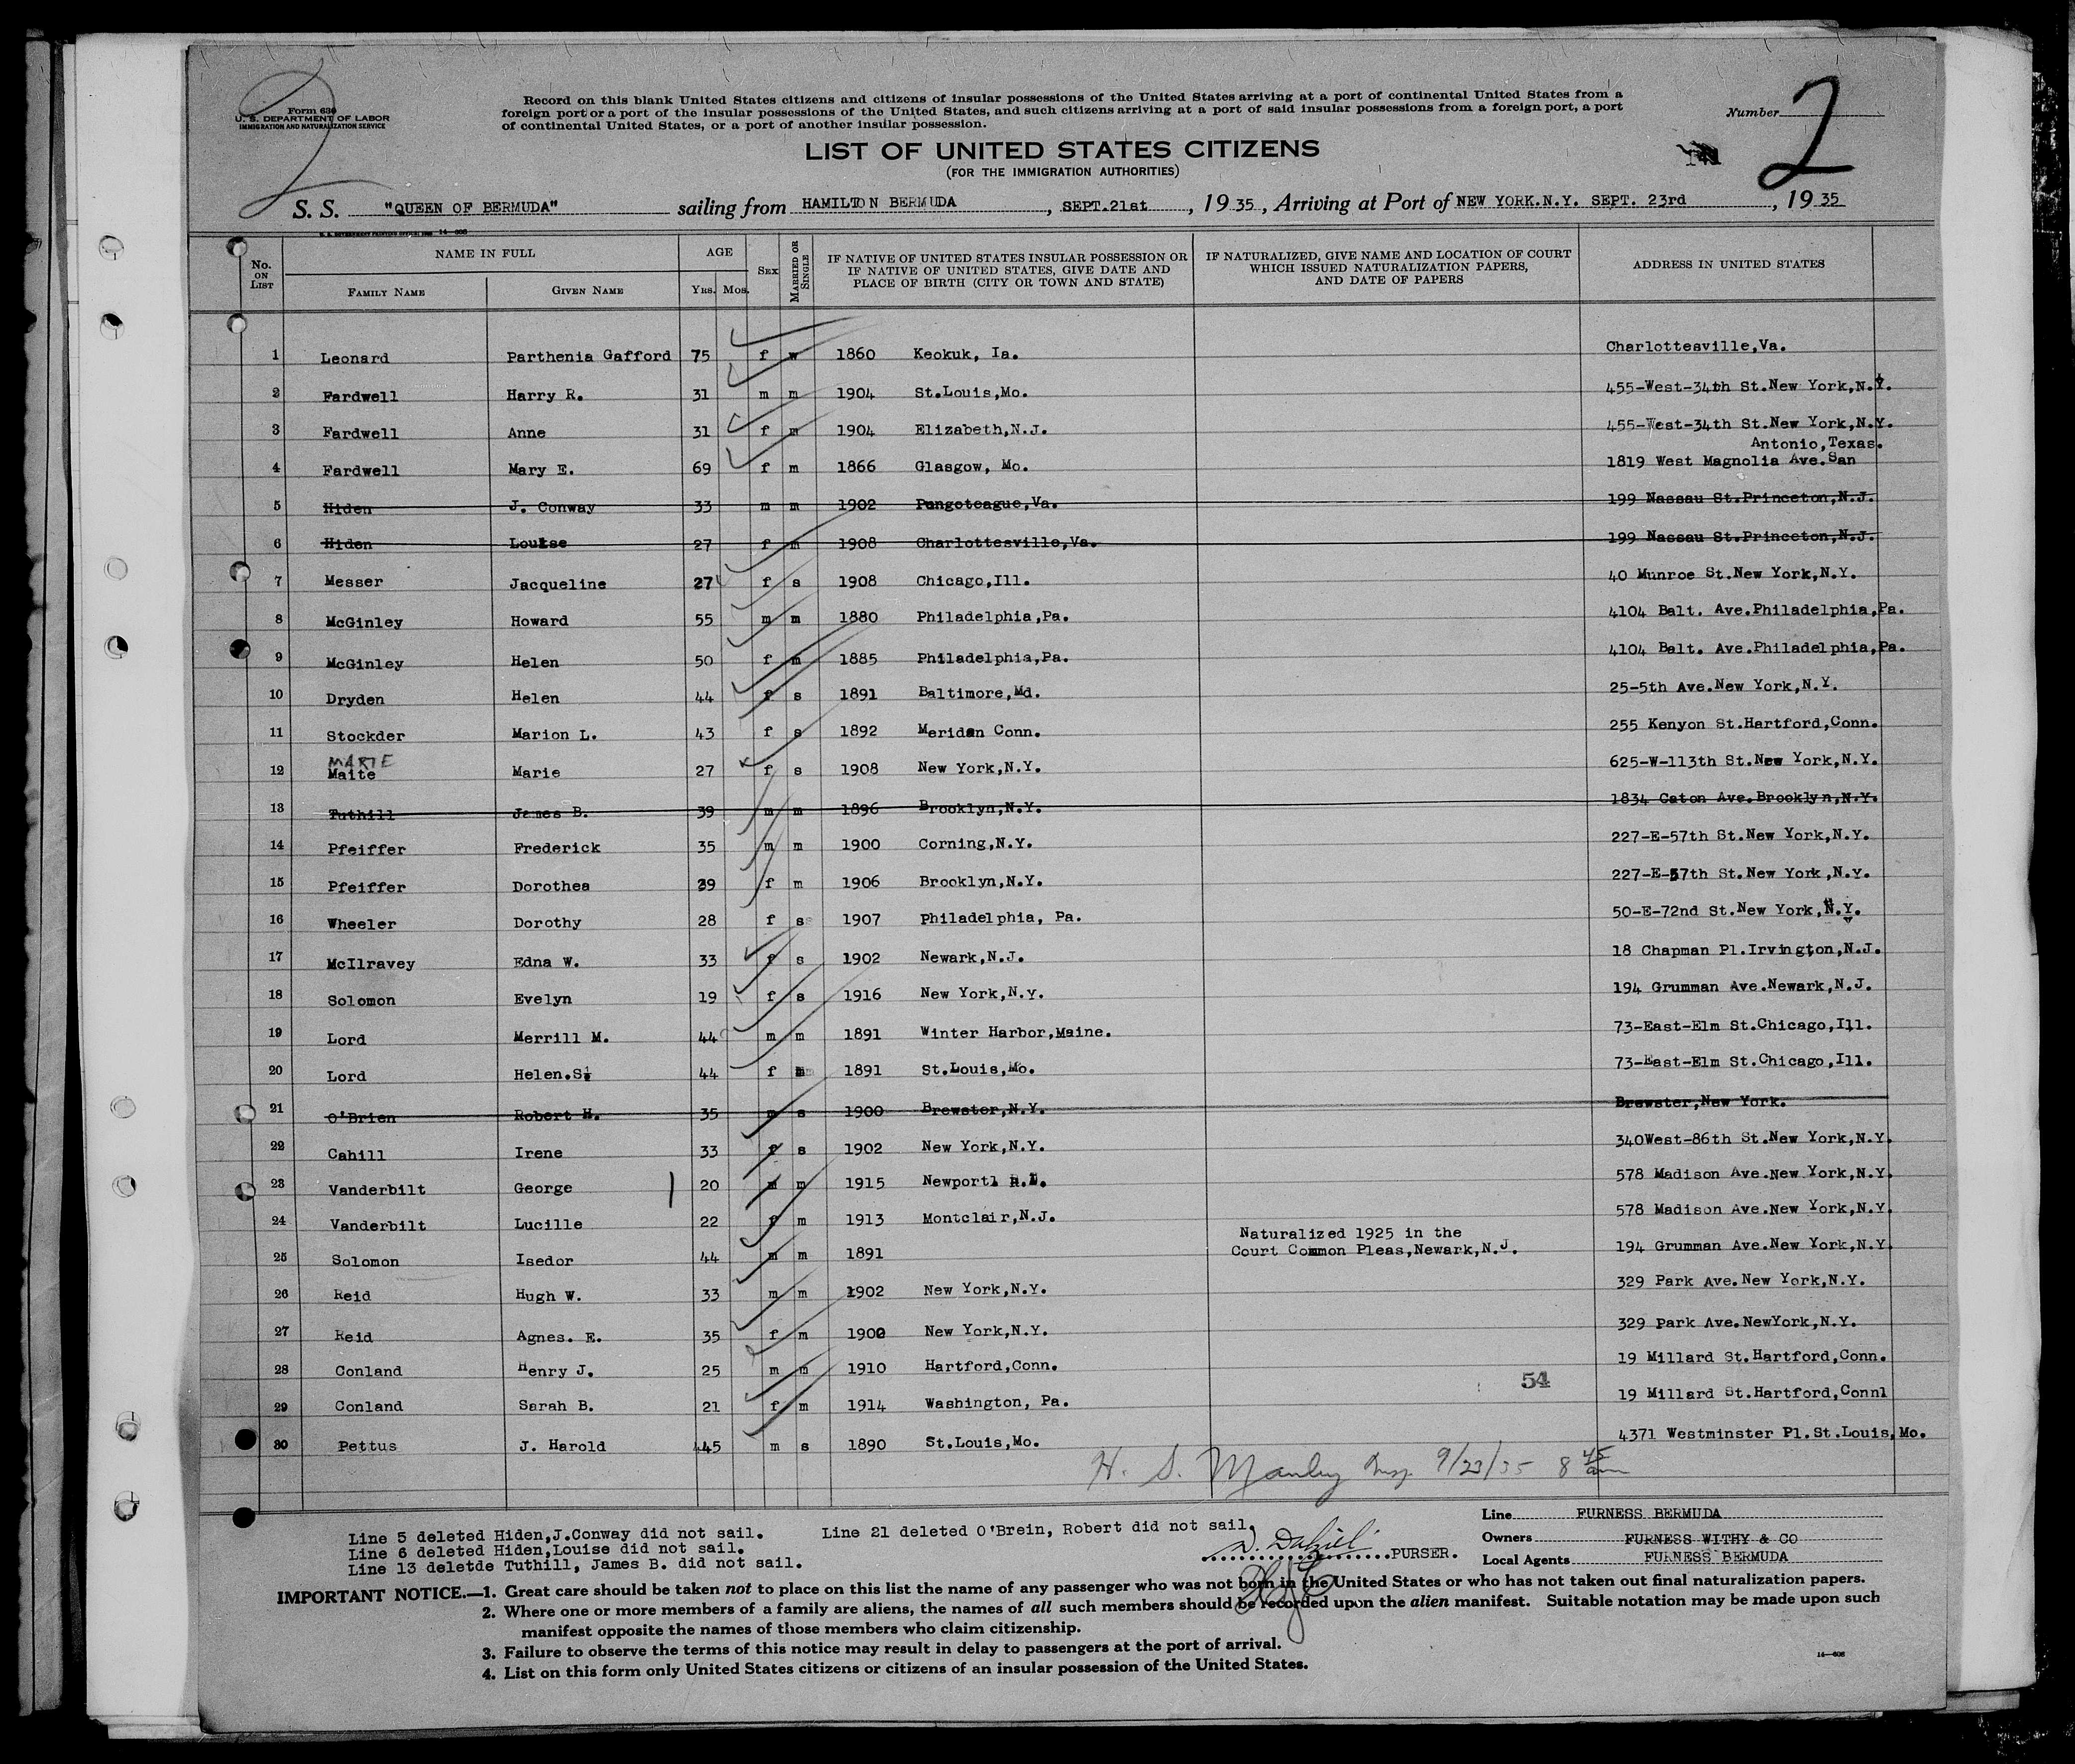 Form 630
U. S. DEPARTMENT OF LABOR
IMMIGRATION AND NATURALIZATION SERVICE
Record on this blank United States citizens and citizens of insular possessions of the United States arriving at a port of continental United States from a
foreign port or a port of the insular possessions of the United States, and such citizens arriving at a port of said insular possessions from a foreign port, a port
of continental United States, or a port of another insular possession.
Number 2
LIST OF UNITED STATES CITIZENS
(FOR THE IMMIGRATION AUTHORITIES)
S. S. "QUEEN OF BERMUDA" sailing from HAMILTON BERMUDA, SEPT.21st, 1935, Arriving at Port of NEW YORK.N.Y. SEPT. 23rd, 1935
No. ON LIST NAME IN FULL FAMILY NAME GIVEN NAME AGE YRS. MOS. SEX MARRIED OR SINGLE IF NATIVE OF UNITED STATES INSULAR POSSESSION OR IF NATIVE OF UNITED STATES, GIVE DATE AND PLACE OF BIRTH (CITY OR TOWN AND STATE) IF NATURALIZED, GIVE NAME AND LOCATION OF COURT WHICH ISSUED NATURALIZATION PAPERS, AND DATE OF PAPERS ADDRESS IN UNITED STATES
1 Leonard Parthenia Gafford 75 f w 1860 Keokuk, Ia. Charlottesville,Va.
2 Fardwell Harry R. 31 m m 1904 St.Louis,Mo. 455-West-34th St.New York,N.Y.
3 Fardwell Anne 31 f m 1904 Elizabeth,N.J. 455-West-34th St.New York,N.Y.
Antonio,Texas.
4 Fardwell Mary E. 69 f m 1866 Glasgow, Mo. 1819 West Magnolia Ave.San
5 Hiden J. Conway 33 m m 1902 Pungoteague,Va. 199 Nassau St.Princeton,N.J.
6 Hiden Louise 27 f m 1908 Charlottesville,Va. 199 Nassau St.Princeton,N.J.
7 Messer Jacqueline 27 f s 1908 Chicago,Ill. 40 Munroe St.New York,N.Y.
8 McGinley Howard 55 m m 1880 Philadelphia,Pa. 4104 Balt. Ave.Philadelphia,Pa.
9 McGinley Helen 50 f m 1885 Philadelphia,Pa. 4104 Balt. Ave.Philadelphia,Pa.
10 Dryden Helen 44 f s 1891 Baltimore,Md. 25-5th Ave.New York,N.Y.
11 Stockder Marion L. 43 f s 1892 Meriden Conn. 255 Kenyon St.Hartford,Conn.
MARIE
12 Maite Marie 27 f s 1908 New York,N.Y. 625-W-113th St.New York,N.Y.
13 Tuthill James B. 39 m m 1896 Brooklyn,N.Y. 1834 Caton Ave.Brooklyn,N.Y.
14 Pfeiffer Frederick 35 m m 1900 Corning,N.Y. 227-E-57th St.New York,N.Y.
15 Pfeiffer Dorothea 29 f m 1906 Brooklyn,N.Y. 227-E-57th St.New York,N.Y.
16 Wheeler Dorothy 28 f s 1907 Philadelphia, Pa. 50-E-72nd St.New York,N.Y.
17 McIlravey Edna W. 33 f s 1902 Newark,N.J. 18 Chapman Pl.Irvington,N.J.
18 Solomon Evelyn 19 f s 1916 New York,N.Y. 194 Grumman Ave.Newark,N.J.
19 Lord Merrill M. 44 m m 1891 Winter Harbor,Maine. 73-East-Elm St.Chicago,Ill.
20 Lord Helen.S. 44 f m 1891 St.Louis,Mo. 73-East-Elm St.Chicago,Ill.
21 O'Brien Robert H. 35 m s 1900 Brewster,N.Y. Brewster,New York.
22 Cahill Irene 33 f s 1902 New York,N.Y. 340West-86th St.New York,N.Y.
23 Vanderbilt George 20 m m 1915 Newportl R.I. 578 Madison Ave.New York,N.Y.
24 Vanderbilt Lucille 22 f m 1913 Montclair,N.J. 578 Madison Ave.New York,N.Y.
Naturalized 1925 in the
25 Solomon Isedor 44 m m 1891 Court Common Pleas,Newark,N.J. 194 Grumman Ave.New York,N.Y.
26 Reid Hugh W. 33 m m 1902 New York,N.Y. 329 Park Ave.New York,N.Y.
27 Reid Agnes. E. 35 f m 1900 New York,N.Y. 329 Park Ave.NewYork,N.Y.
28 Conland Henry J. 25 m m 1910 Hartford,Conn. 19 Millard St.Hartford,Conn.
54
29 Conland Sarah B. 21 f m 1914 Washington, Pa. 19 Millard St.Hartford,Connl
30 Pettus J. Harold 445 m s 1890 St.Louis,Mo. 4371 Westminster Pl.St.Louis,Mo.
H. S. Manley Insp. 9/23/35 8 45 am
Line 5 deleted Hiden,J.Conway did not sail. Line 21 deleted O'Brein, Robert did not sail.
Line 6 deleted Hiden,Louise did not sail.
Line 13 deletde Tuthill, James B. did not sail.
D. Dalziel PURSER.
Line FURNESS BERMUDA
Owners FURNESS WITHY & CO
Local Agents FURNESS BERMUDA
IMPORTANT NOTICE.—1. Great care should be taken not to place on this list the name of any passenger who was not born in the United States or who has not taken out final naturalization papers.
2. Where one or more members of a family are aliens, the names of all such members should be recorded upon the alien manifest. Suitable notation may be made upon such
manifest opposite the names of those members who claim citizenship.
3. Failure to observe the terms of this notice may result in delay to passengers at the port of arrival.
4. List on this form only United States citizens or citizens of an insular possession of the United States.
14—608